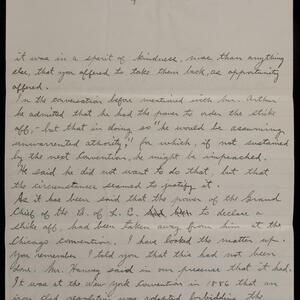 it was in a spirit of kindness, more than anything
else, that you offered to take them back, as opportunity
offered.
In the conversation before mentioned with Mr. Arthur
he admitted that he had the power to order the strike
off,- but that in doing so "he would be assuming
unwarranted athority," for which, if not sustained
by the next Convention, he might be impeached.
He said he did not want to do that, but that
the circumstances seemed to justify it.
As it has been said that the power of the Grand
Chief of the B. of L. E. to declare a
strike off, had been taken away from him at the
Chicago convention, I have looked the matter up.
You remember I told you that this had not been
done. Mr. said in our presence that it had.
It was at the New York Convention in 1886 that an
iron clad resolution was adopted forbidding the